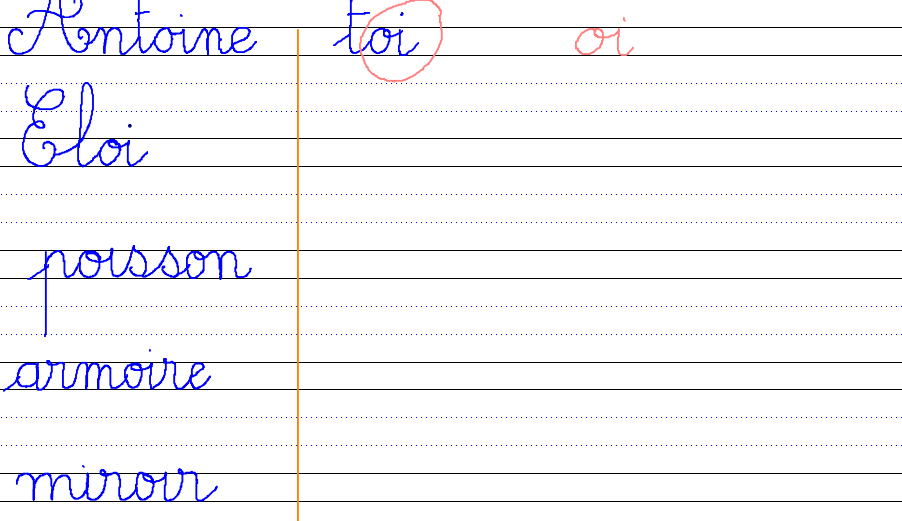 Antoine toi oi
Eloi
poisson
armoire
miroir